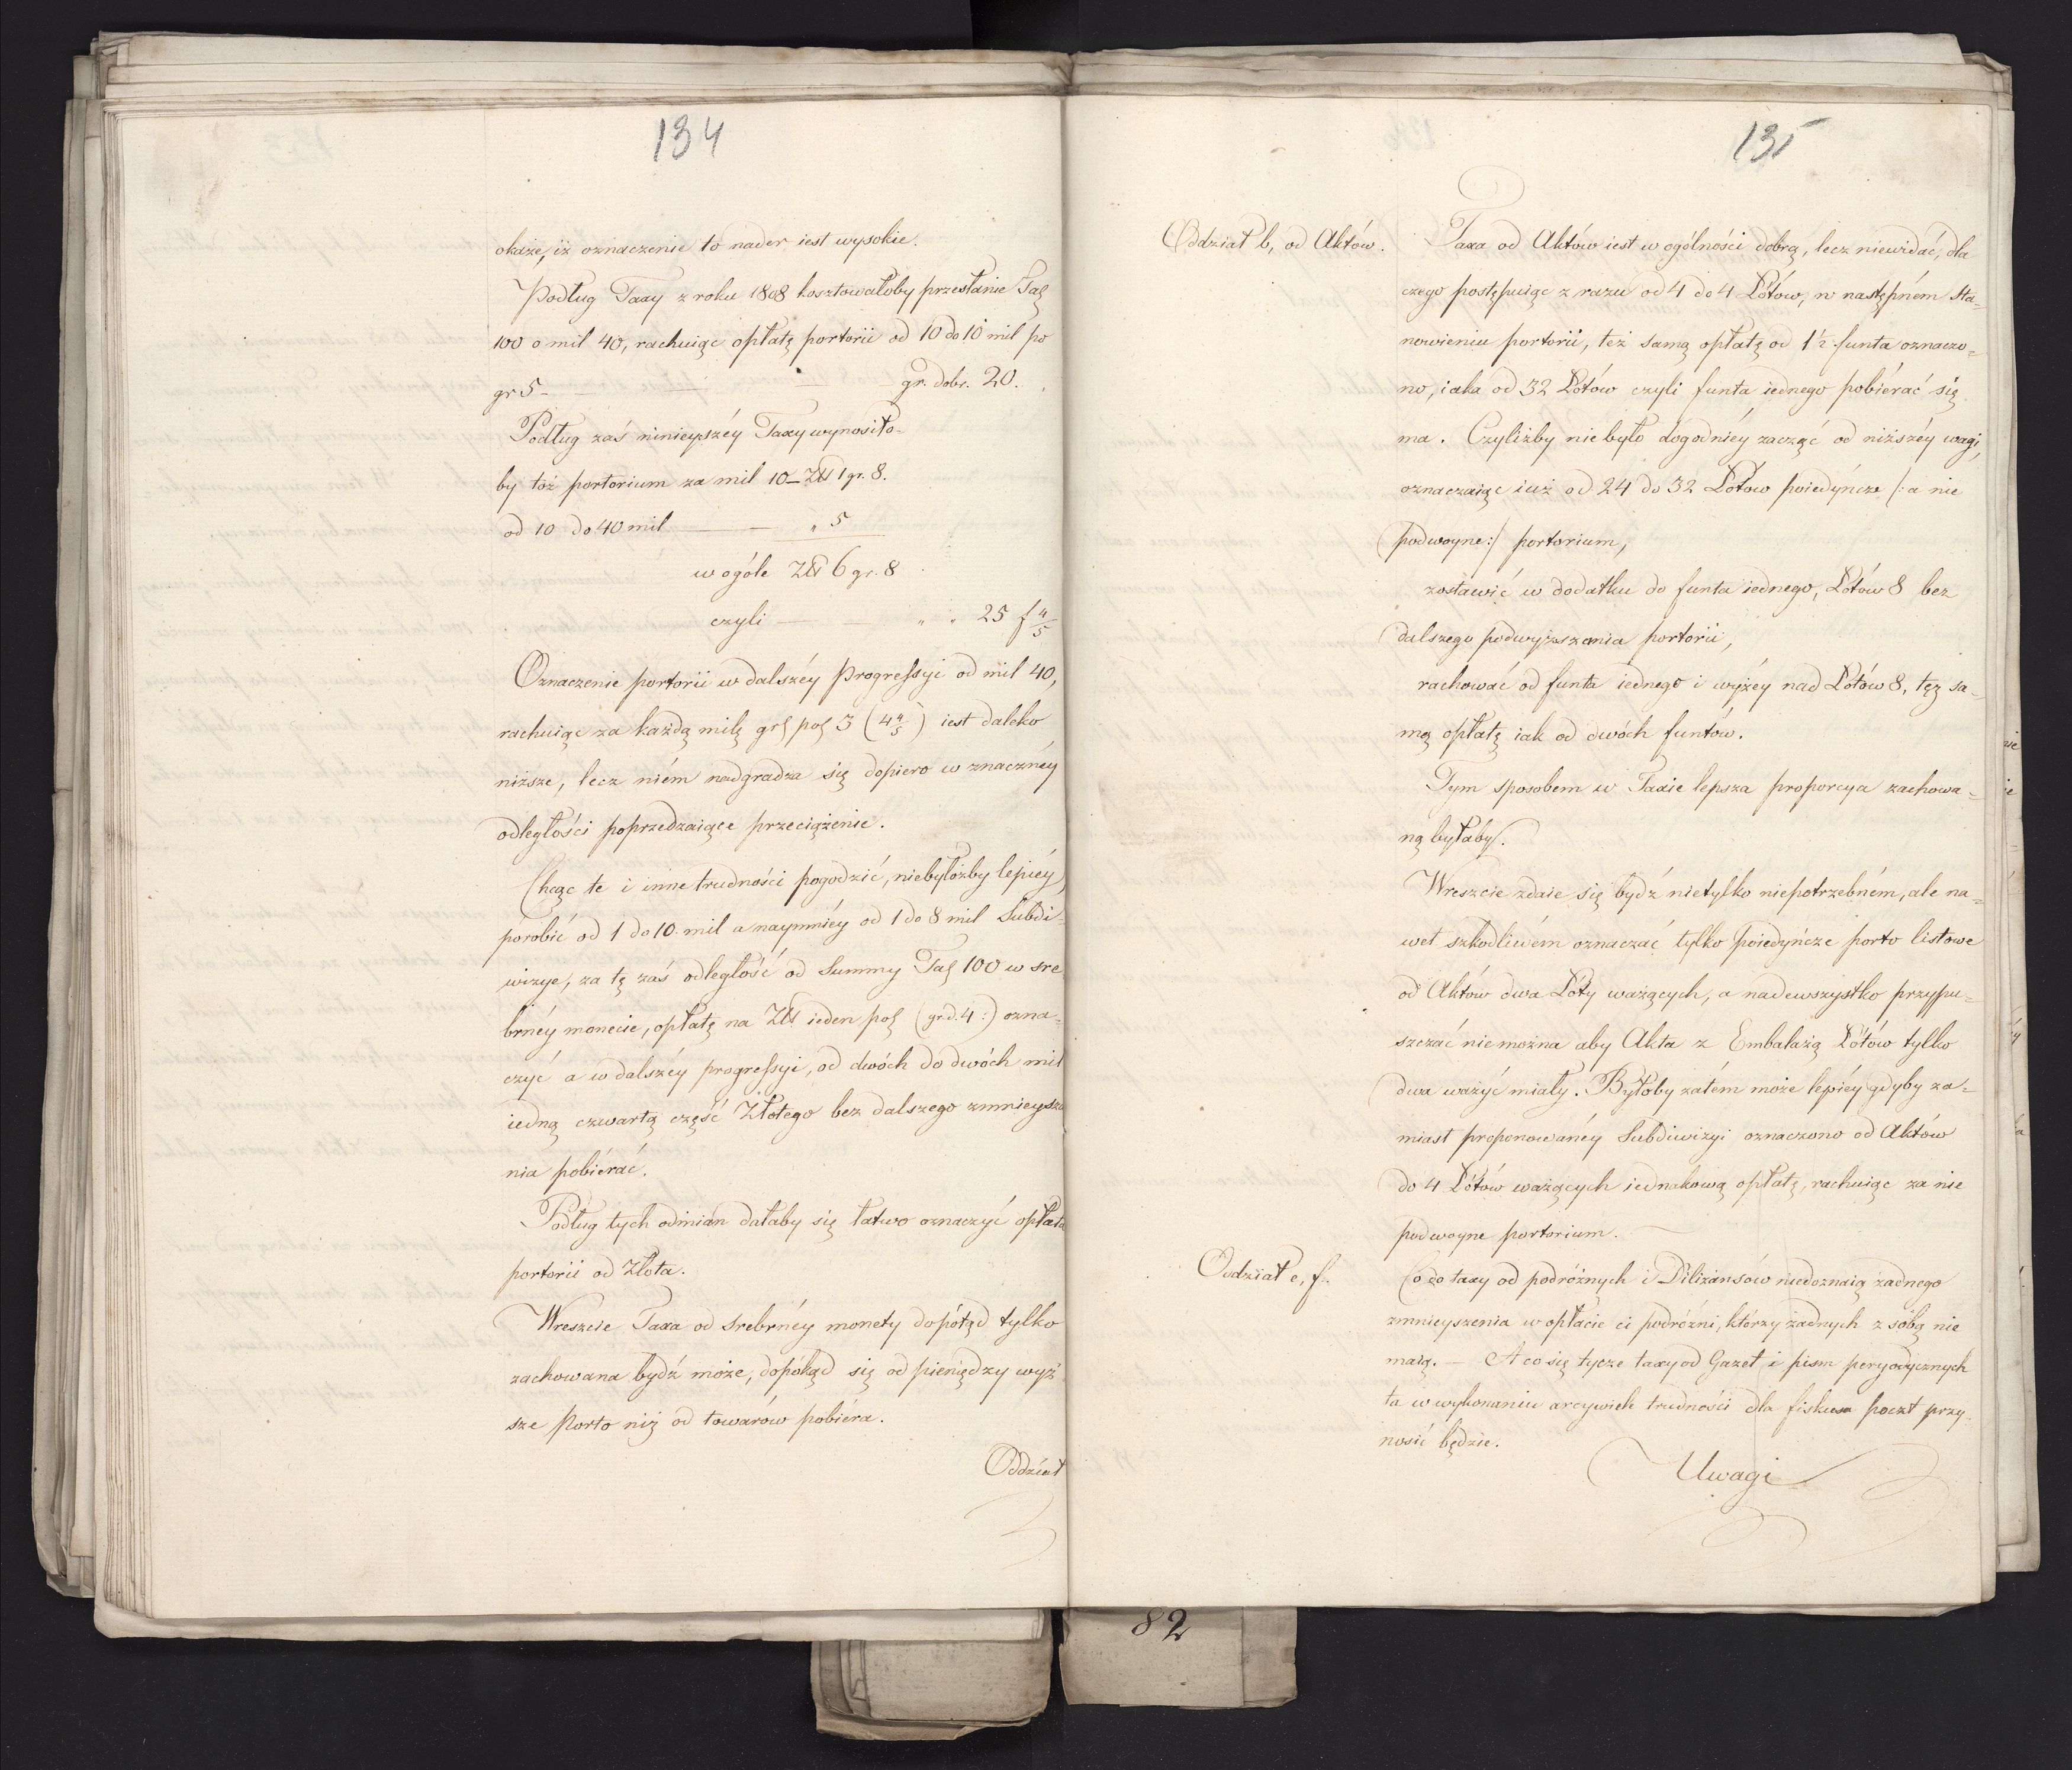 134
okaże, iż oznaczenie to nader iest wysokie.
Podług Taxy z roku 1808 kosztowałoby przesłanie Tal
100 o mil 40, rachuiąc opłatę portorii od 10 do 10 mil po
gr 5 - — — gr. dobr. 20.
Podług zaś ninieyszéy Taxy wynosiło-
by toż portorium za mil 10 - Zł 1 gr. 8.
od 10 do 40 mil — — „ 5
w ogóle Zł 6 gr. 8
czyli — „ „ 25 f 4/5
Oznaczenie portorii w dalszéy Progressyi od mil 40,
rachuiąc za każdą milę grs pol 3 (4 4/5) iest daleko
niższe, lecz niém nadgradza się dopiero w znacznéy
odległości poprzedzaiące przeciążenie.
Chcąc te i inne trudności pogodzić, niebyłożby lepiéy,
porobić od 1 do 10 mil a naymniéy od 1 do 8 mil Subdi-
wizye, za tę zaś odległość od Summy Tal 100 w sre
brnéy monecie, opłatę na Zł ieden pol (gr d. 4:) ozna-
czyć a w dalszéy progressyi, od dwóch do dwóch mil
iedną czwartą część Złotego bez dalszego zmnieysza
nia pobiérać.
Podług tych odmian dałaby się łatwo oznaczyć opłata
portorii od Złota.
Wreszcie Taxa od srebrnéy monety dopótąd tylko
zachowana bydź może, dopókąd się od pieniędzy wyż
sze Porto niż od towarów pobiéra.
Oddział
135
Oddział b, od Aktów.
Taxa od Aktów iest w ogólności dobrą, lecz niewidać, dla
czego postępuiąc z razu od 4 do 4 Łótow, w następném sta-
nowieniu portorii, też samą opłatę od 1 1/2 funta oznaczo-
no, iaka od 32 Łótów czyli funta iednego pobiérać się
ma. Czyliżby nie było dogodniéy zacząć od niższéy wagi,
oznaczaiąc iuż od 24 do 32 Łótow poiedyńcze /: a nie
podwoyne :/ portorium,
zostawić w dodatku do funta iednego, Łótów 8 bez
dalszego podwyższania portorii,
rachować od funta iednego i wyżéy nad Łótów 8, tęż sa-
mą opłatę iak od dwóch funtów.
Tym sposobem w Taxie lepsza proporcya zachowa-
ną byłaby.
Wreszcie zdaie się bydź nietylko niepotrzebném, ale na-
wet szkodliwém oznaczać tylko poiedyńcze porto listowe
od Aktów dwa Łóty ważących, a nadewszystko przypu-
szczać niemożna aby Akta z Embalażą Łótów tylko
dwa ważyć miały. Byłoby zatém może lepiéy gdyby za-
miast proponowanéy Subdiwizyi oznaczono od Aktów
do 4 Łótów ważących iednakową opłatę, rachuiąc za nie
podwoyne portorium.
Oddział e, f.
Co do taxy od podróżnych i Diliżansów niedoznaią żadnego
zmnieyszenia w opłacie ci podróżni, którzy żadnych z sobą nie
maią. — A co się tycze taxy od Gazet i pism peryodycznych
ta w wykonaniu arcywiele trudności dla fiskusa poczt przy
nosić będzie.
Uwagi
82